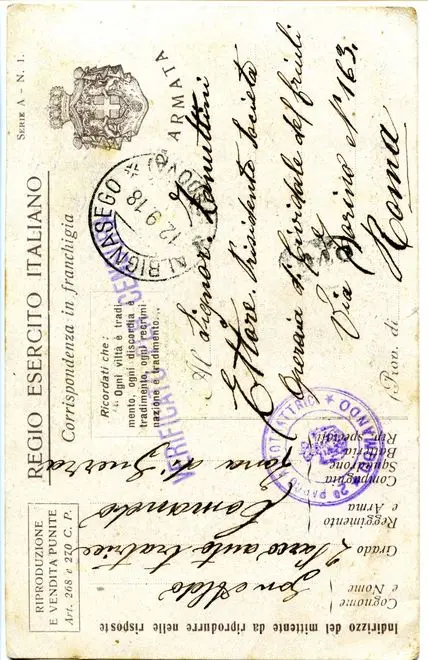 REGIO ESERCITO ITALIANO
Corrispondenza in franchigia
SERIE A - N. 1.
ARMATA
RIPRODUZIONE
E VENDITA PUNITE
Art. 268 e 270 C. P.
Ricordati che:
" Ogni viltà è tradi-
mento, ogni discordia è
tradimento, ogni recrimi-
nazione è tradimento...
VERIFICATO PER CENSURA
ALBIGNASEGO
12.9.18
(PADOVA)
Al Signor Zanuttini
Ettore. Presidente Società
Operaia di Cividale del friuli
Via Torino N° 163.
Roma
(Prov. di
Indirizzo del mittente da riprodurre nelle risposte
Cognome
e Nome
Aldo
Grado
Parco autotratrice
Reggimento
e Arma
Comando
Compagnia
Squadrone
Batteria
Rip. speciali
Zona di Guerra
2° PARCO TRATTRICI
COMANDO